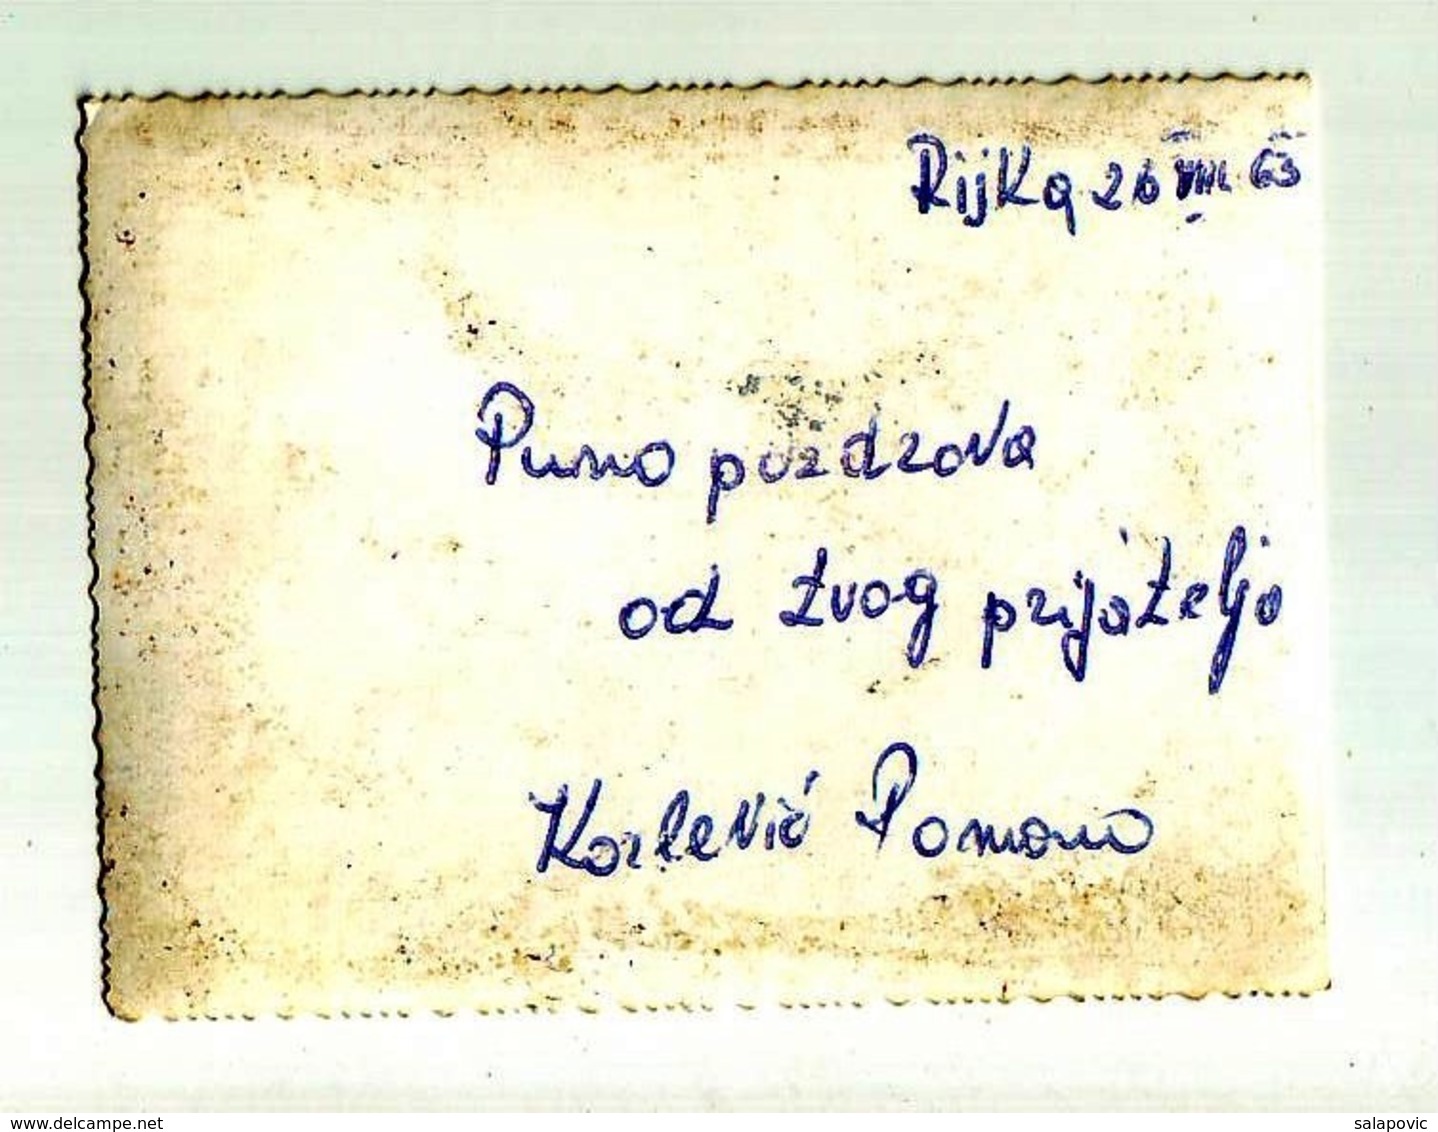 Rijka 26 VIII 63
Puno pozdrava
od tvog prijatelja
Korlević Romano
delcampe.net
salapovic